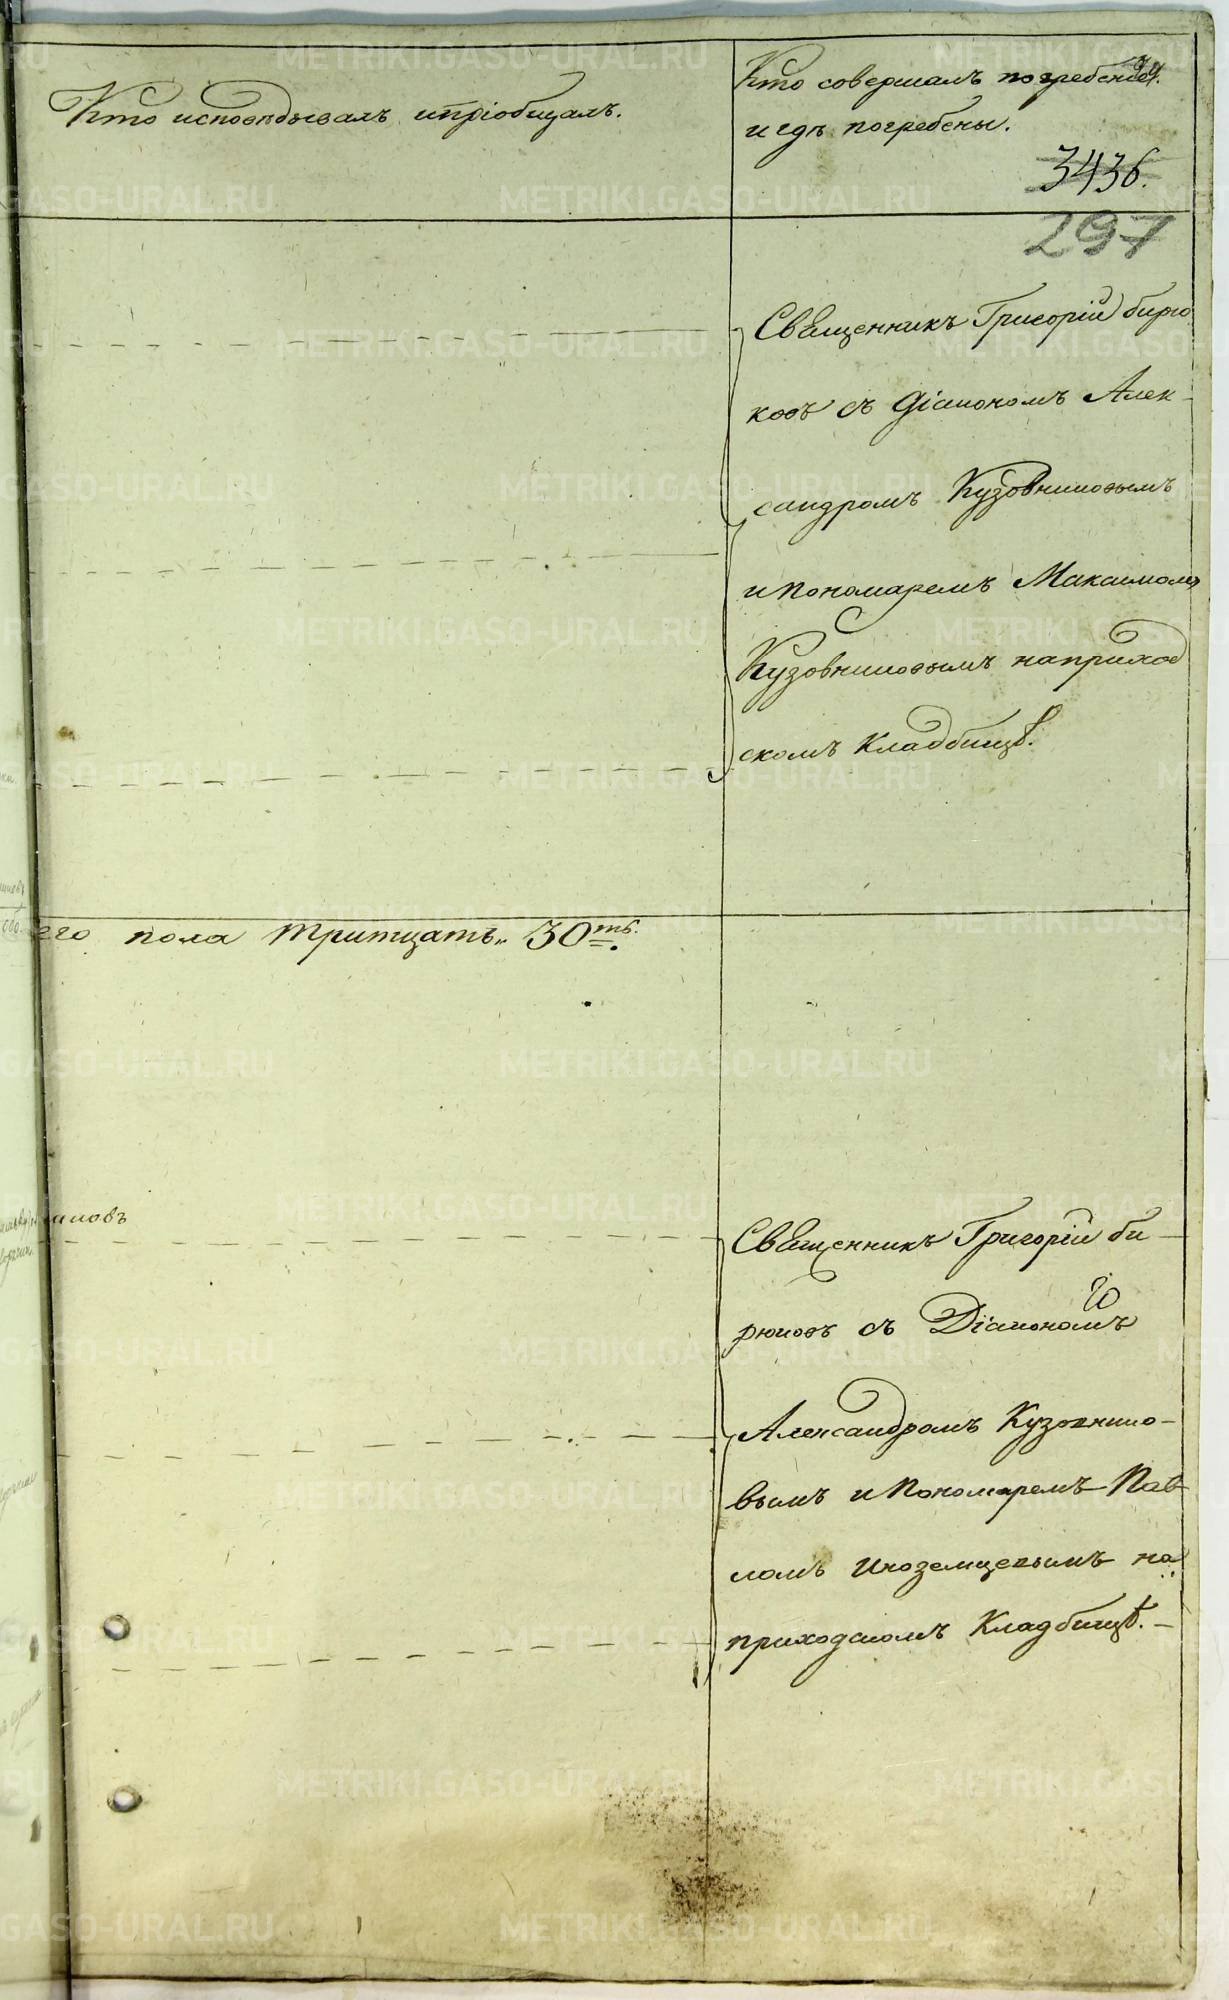 Кто исповѣдывалъ ипріобщалъ.
Кто совершалъ погребеніе
игдѣ погребены.
3436.
297
Священникъ Григорій бирю
ковъ съ діакономъ Алек-
сандромъ Кузовниковымъ
ипономаремъ Максимомъ
Кузовниковымъ наприход
скомъ кладбищѣ.
его пола тритцать„ 30ть.
иковъ
Священникъ Григорій би-
рюковъ съ Діакономъ
Александромъ Кузовнико-
вымъ ипономаремъ Пав
ломъ Иноземцевымъ на
приходскомъ Кладбищѣ.-
METRIKI.GASO-URAL.RU